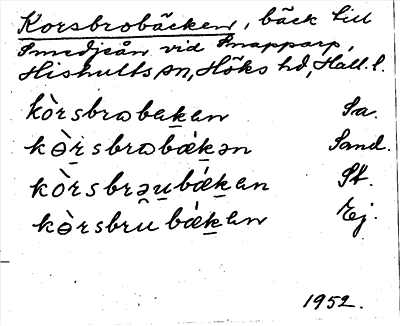 Korsbrobäcken, bäck till
Smedjeån vid Knapparp,
Hishults sn, Höks hd, Hall. l.
kòrsbrobaḵan Sa.
kɵ̀rsbrobǽḵən Sand.
kòrsbrəṷbǽḵan St.
kɵ̀rsbrubǽḵan Ej.
1952.